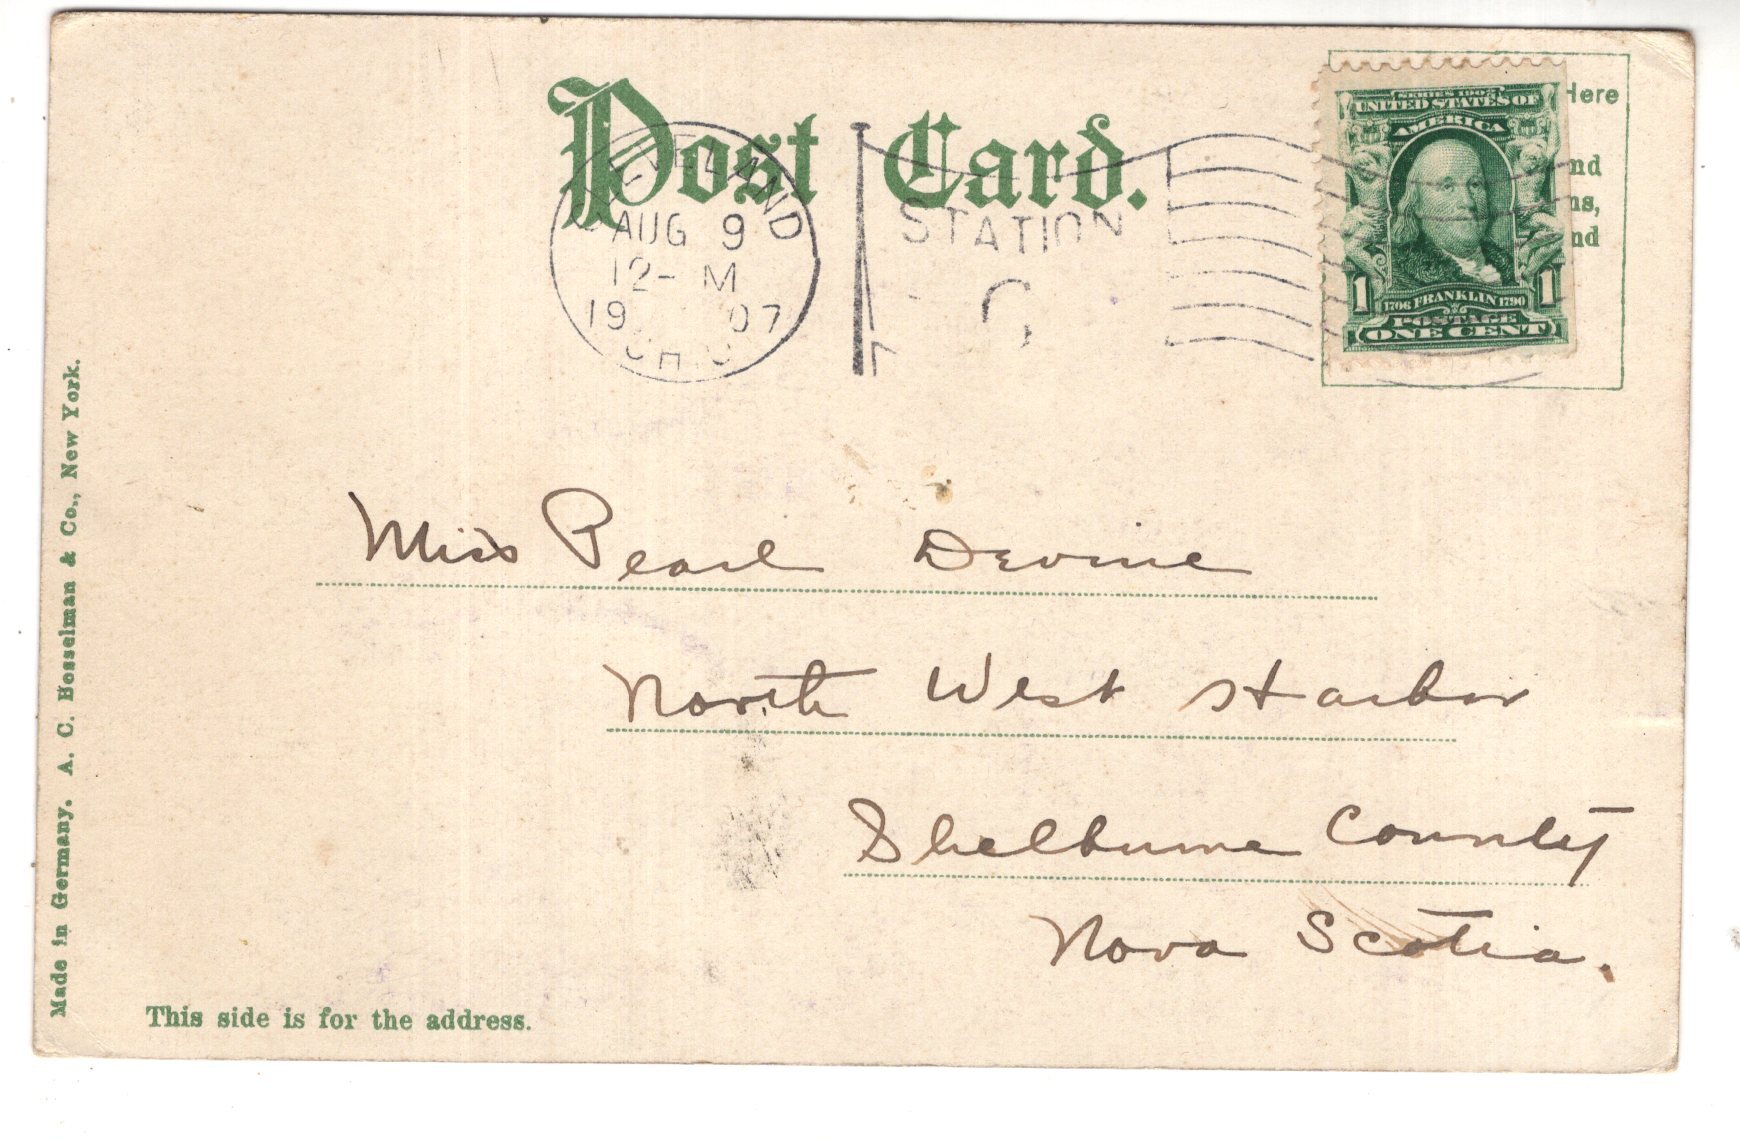 Post Card.
CLEVELAND
AUG 9
12- M
19 07
OHIO
STATION
C
Here
nd
ns,
nd
SERIES 1902
UNITED STATES OF
AMERICA
1 1706 FRANKLIN 1790 1
POSTAGE
ONE CENT
Miss Pearl Devine
North West Harbor
Shelburne County
Nova Scotia.
This side is for the address.
Made in Germany. A. C. Bosselman & Co., New York.